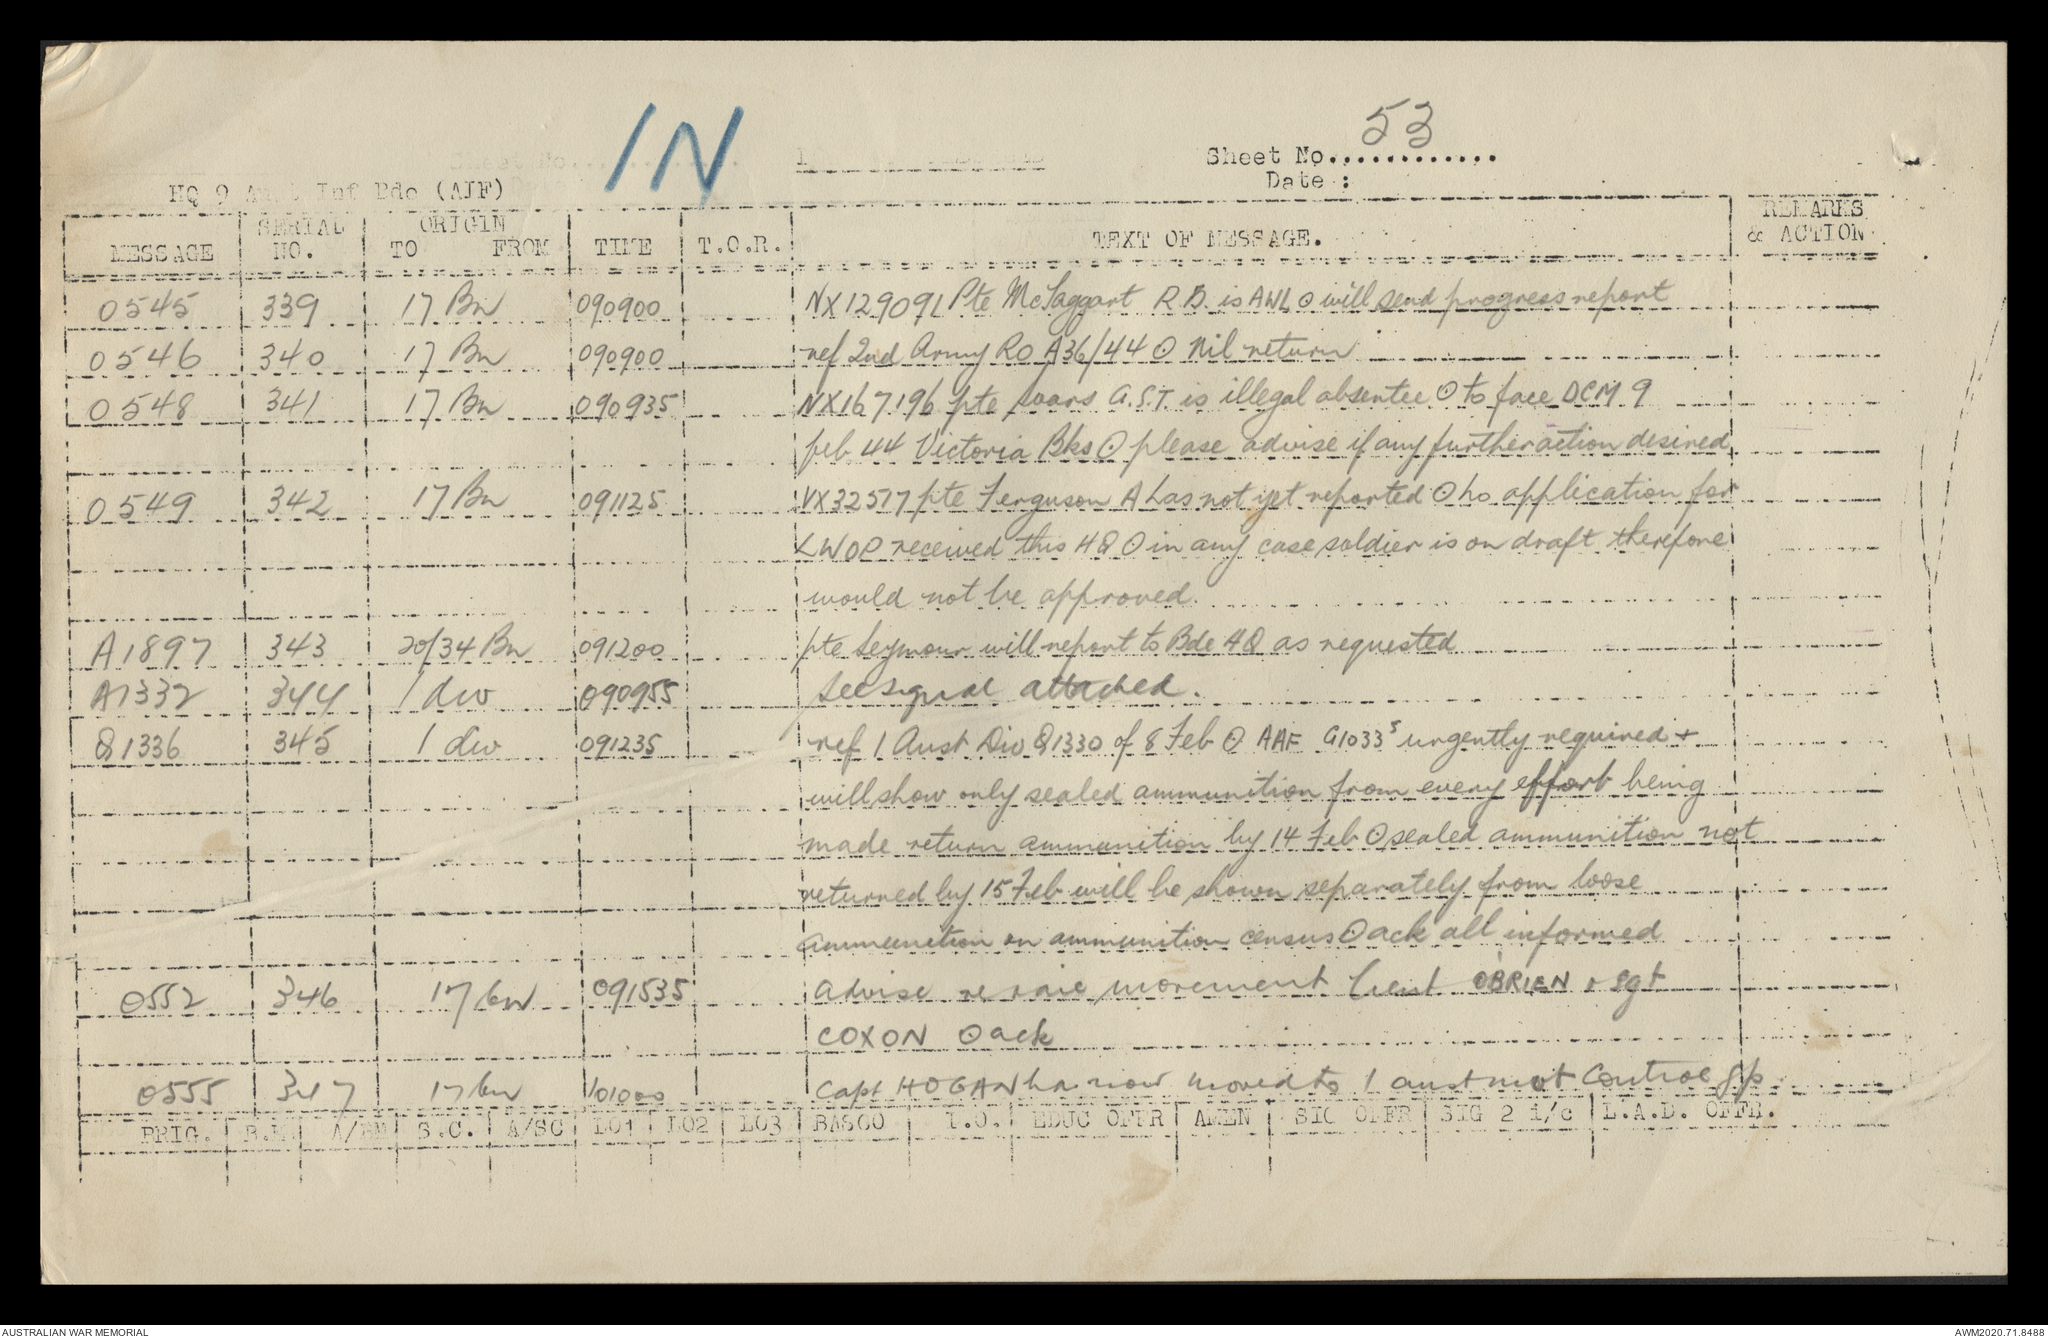 IN
Sheet No............. 53
Date :
HQ 9 Aust Inf Bde (AIF)
MESSAGE | SERIAL NO. | ORIGIN TO FROM | TIME | T.O.R. | TEXT OF MESSAGE. | REMARKS & ACTION
0545 | 339 | 17 Bn | 090900 | NX129091 Pte McTaggart R.B. is AWL ⊙ will send progress report
0546 | 340 | 17 Bn | 090900 | ref 2nd Army RO A36/44 ⊙ Nil return
0548 | 341 | 17 Bn | 090935 | NX167196 pte Soars G.S.T. is illegal absentee ⊙ to face DCM 9
feb 44 Victoria Bks ⊙ please advise if any further action desired
0549 | 342 | 17 Bn | 091125 | VX32517 pte Ferguson A has not yet reported ⊙ no application for
LWOP received this HQ ⊙ in any case soldier is on draft therefore
would not be approved.
A1897 | 343 | 20/34 Bn | 091200 | pte Seymour will report to Bde HQ as requested
A1332 | 344 | 1 div | 090955 | See signal attached.
Q1336 | 345 | 1 div | 091235 | ref 1 Aust Div Q1330 of 8 Feb ⊙ AAF G1033s urgently required +
will show only sealed ammunition from every effort being
made return ammunition by 14 Feb ⊙ sealed ammunition not
returned by 15 Feb will be shown separately from loose
ammunition on ammunition census ⊙ ack all informed
0552 | 346 | 17 bn | 091535 | Advise movement Lieut OBRIEN + Sgt
COXON ⊙ ack
0555 | 347 | 17 bn | 101000 | Capt HOGAN has now moved to 1 aust mot Control gp
BRIG. | B.M. | A/BM | S.C. | A/SC | LO1 | LO2 | LO3 | BASCO | I.O. | EDUC OFFR | AMEN | SIG OFFR | SIG 2 i/c | L.A.D. OFFR.
AUSTRALIAN WAR MEMORIAL
AWM2020.71.8488